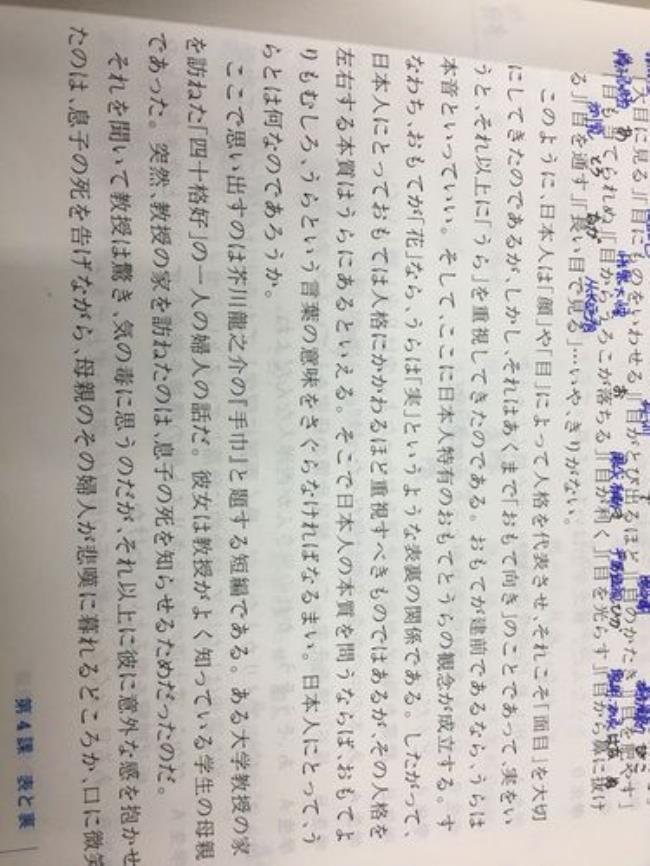 「大目に見る」「目にものをいわせる」「目がとび出るほど」「目のかたき」「目を肥やす」
「目も当てられぬ」「目からうろこが落ちる」「目が利く」「目を光らす」「目から鼻に抜け
る」「目を通す」「長い目で見る」…いや、きりがない。
このように、日本人は「顔」や「目」によって人格を代表させ、それこそ「面目」を大切
にしてきたのであるが、しかし、それはあくまで「おもて向き」のことであって、実をい
うと、それ以上に「うら」を重視してきたのである。おもてが建前であるなら、うらは
本音といっていい。そして、ここに日本人特有のおもてとうらの観念が成立する。す
なわち、おもてが「花」なら、うらは「実」というような表裏の関係である。したがって、
日本人にとっておもては人格にかかわるほど重視すべきものではあるが、その人格を
左右する本質はうらにあるといえる。そこで日本人の本質を問うならば、おもてよ
りもむしろ、うらという言葉の意味をさぐらなければなるまい。日本人にとって、う
らとは何なのであろうか。
ここで思い出すのは芥川龍之介の『手巾』と題する短編である。ある大学教授の家
を訪ねた「四十格好」の一人の婦人の話だ。彼女は教授がよく知っている学生の母親
であった。突然、教授の家を訪ねたのは、息子の死を知らせるためだったのだ。
それを聞いて教授は驚き、気の毒に思うのだが、それ以上に彼に意外な感を抱かせ
たのは、息子の死を告げながら、母親のその婦人が悲嘆に暮れるどころか、口に微笑
第4課 表と裏